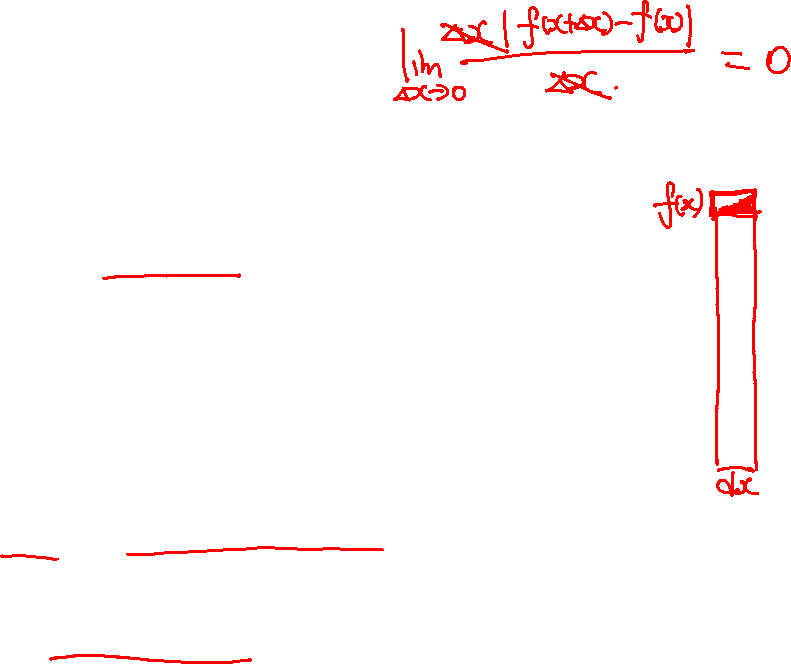 lim Δx→0 Δx|f(x+Δx)-f(x)| / Δx. = 0
f(x)
dx